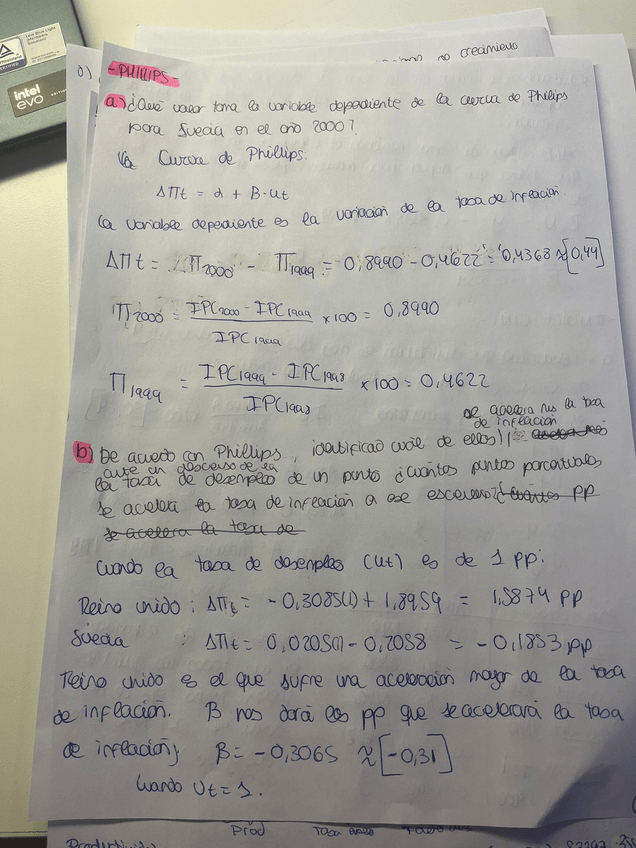 Low Blue Light
(Hardware
Solution)
TÜVRheinland
CERTIFIED
intel
evo
EDITION
no crecimiento
- PHILLIPS -
a) ¿Qué valor toma la variable dependiente de la curva de Philips
para Suecia en el año 2000?
La Curva de Phillips:
ΔΠt = α + B · Ut
La variable dependiente es la variación de la tasa de inflación.
ΔΠt = Π2000 - Π1999 = 0,8990 - 0,4622 = 0,4368 ≈ [0,44]
Π2000 = IPC2000 - IPC1999 / IPC1999 × 100 = 0,8990
Π1999 = IPC1999 - IPC1998 / IPC1998 × 100 = 0,4622
se acelera más la tasa
de inflación
b) De acuerdo con Phillips, identificad cuál de ellos
ante un descenso de la
la tasa de desempleo de un punto ¿cuántos puntos porcentuales
se acelera la tasa de inflación a ese escenario? cuántos pp
se acelera la tasa de
Cuando la tasa de desempleo (Ut) es de 1 pp:
Reino unido : ΔΠt = - 0,3085(1) + 1,8959 = 1,5874 pp
Suecia : ΔΠt = 0,0205(1) - 0,2058 = - 0,1853 pp
Reino unido es el que sufre una aceleración mayor de la tasa
de inflación. B nos dará los pp que se acelerará la tasa
de inflación; B = - 0,3065 ≈ [-0,31]
Cuando Ut = 1.
Prod